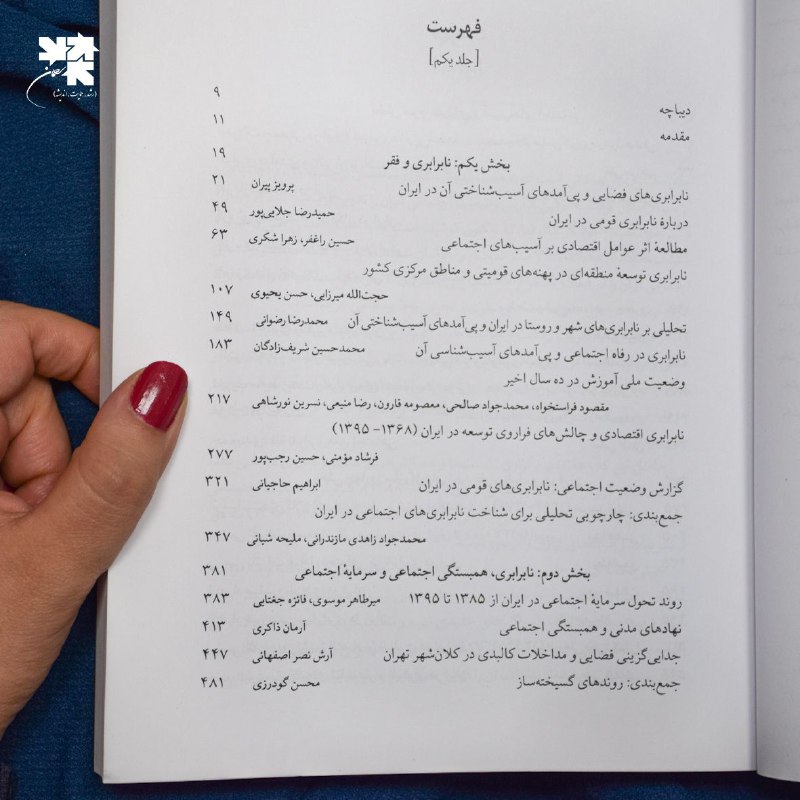 فهرست
[جلد یکم]
دیباچه ۹
مقدمه ۱۱
بخش یکم: نابرابری و فقر ۱۹
نابرابری‌های فضایی و پی‌آمدهای آسیب‌شناختی آن در ایران پرویز پیران ۲۱
دربارهٔ نابرابری قومی در ایران حمیدرضا جلایی‌پور ۴۹
مطالعهٔ اثر عوامل اقتصادی بر آسیب‌های اجتماعی حسین راغفر، زهرا شکری ۶۳
نابرابری توسعهٔ منطقه‌ای در پهنه‌های قومیتی و مناطق مرکزی کشور
حجت‌الله میرزایی، حسن یحیوی ۱۰۷
تحلیلی بر نابرابری‌های شهر و روستا در ایران و پی‌آمدهای آسیب‌شناختی آن محمدرضا رضوانی ۱۴۹
نابرابری در رفاه اجتماعی و پی‌آمدهای آسیب‌شناسی آن محمدحسین شریف‌زادگان ۱۸۳
وضعیت ملی آموزش در ده سال اخیر
مقصود فراستخواه، محمدجواد صالحی، معصومه قارون، رضا منیعی، نسرین نورشاهی ۲۱۷
نابرابری اقتصادی و چالش‌های فراروی توسعه در ایران (۱۳۶۸- ۱۳۹۵)
فرشاد مؤمنی، حسین رجب‌پور ۲۷۷
گزارش وضعیت اجتماعی: نابرابری‌های قومی در ایران ابراهیم حاجیانی ۳۲۱
جمع‌بندی: چارچوبی تحلیلی برای شناخت نابرابری‌های اجتماعی در ایران
محمدجواد زاهدی مازندرانی، ملیحه شیانی ۳۴۷
بخش دوم: نابرابری، همبستگی اجتماعی و سرمایهٔ اجتماعی ۳۸۱
روند تحول سرمایهٔ اجتماعی در ایران از ۱۳۸۵ تا ۱۳۹۵ میرطاهر موسوی، فائزه جغتایی ۳۸۳
نهادهای مدنی و همبستگی اجتماعی آرمان ذاکری ۴۱۳
جدایی‌گزینی فضایی و مداخلات کالبدی در کلان‌شهر تهران آرش نصر اصفهانی ۴۴۷
جمع‌بندی: روندهای گسیخته‌ساز محسن گودرزی ۴۸۱